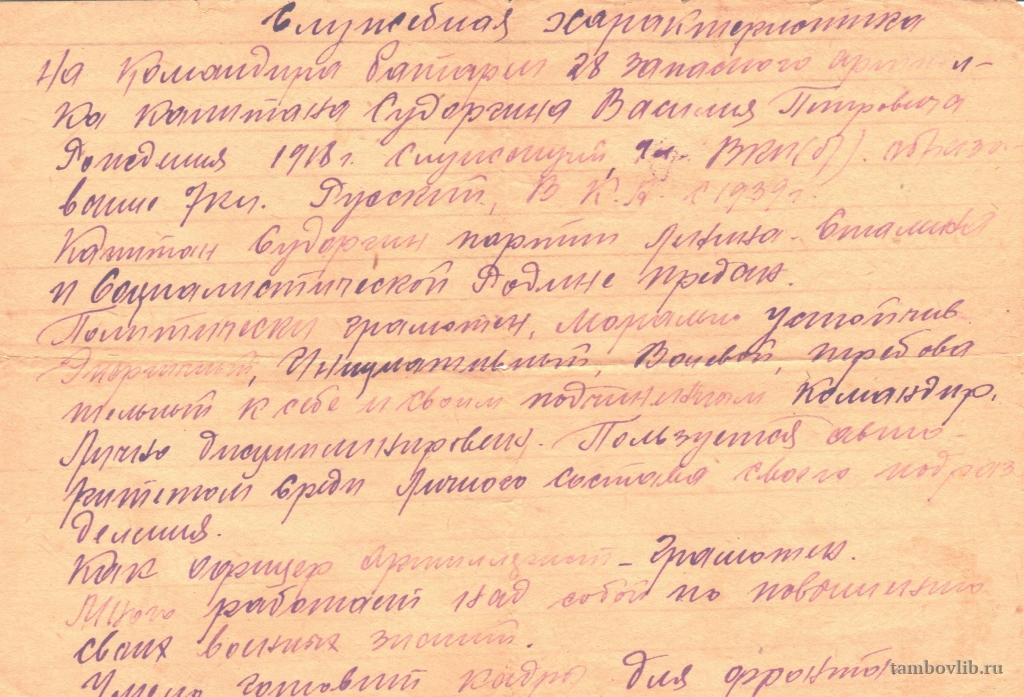 Служебная характеристика
На командира батареи 28 запасного артпол-
ка капитана Судоргина Василия Петровича
Рождения 1918 г. служащий, чл. ВКП(б). образо-
вание 7кл. Русский, В К.А. с 1939 г.
Капитан Судоргин партии Ленина-Сталина
и Социалистической Родине предан.
Политически грамотен, морально устойчив.
Энергичный, Инициативный, Волевой, требова
тельный к себе и своим подчиненным командир.
Лично дисциплинирован. Пользуется авто-
ритетом среди личного состава своего подраз
деления.
Как офицер артиллерист - грамотен.
Много работает над собой по повышению
своих военных знаний.
Умело готовит кадры для фронта
tambovlib.ru